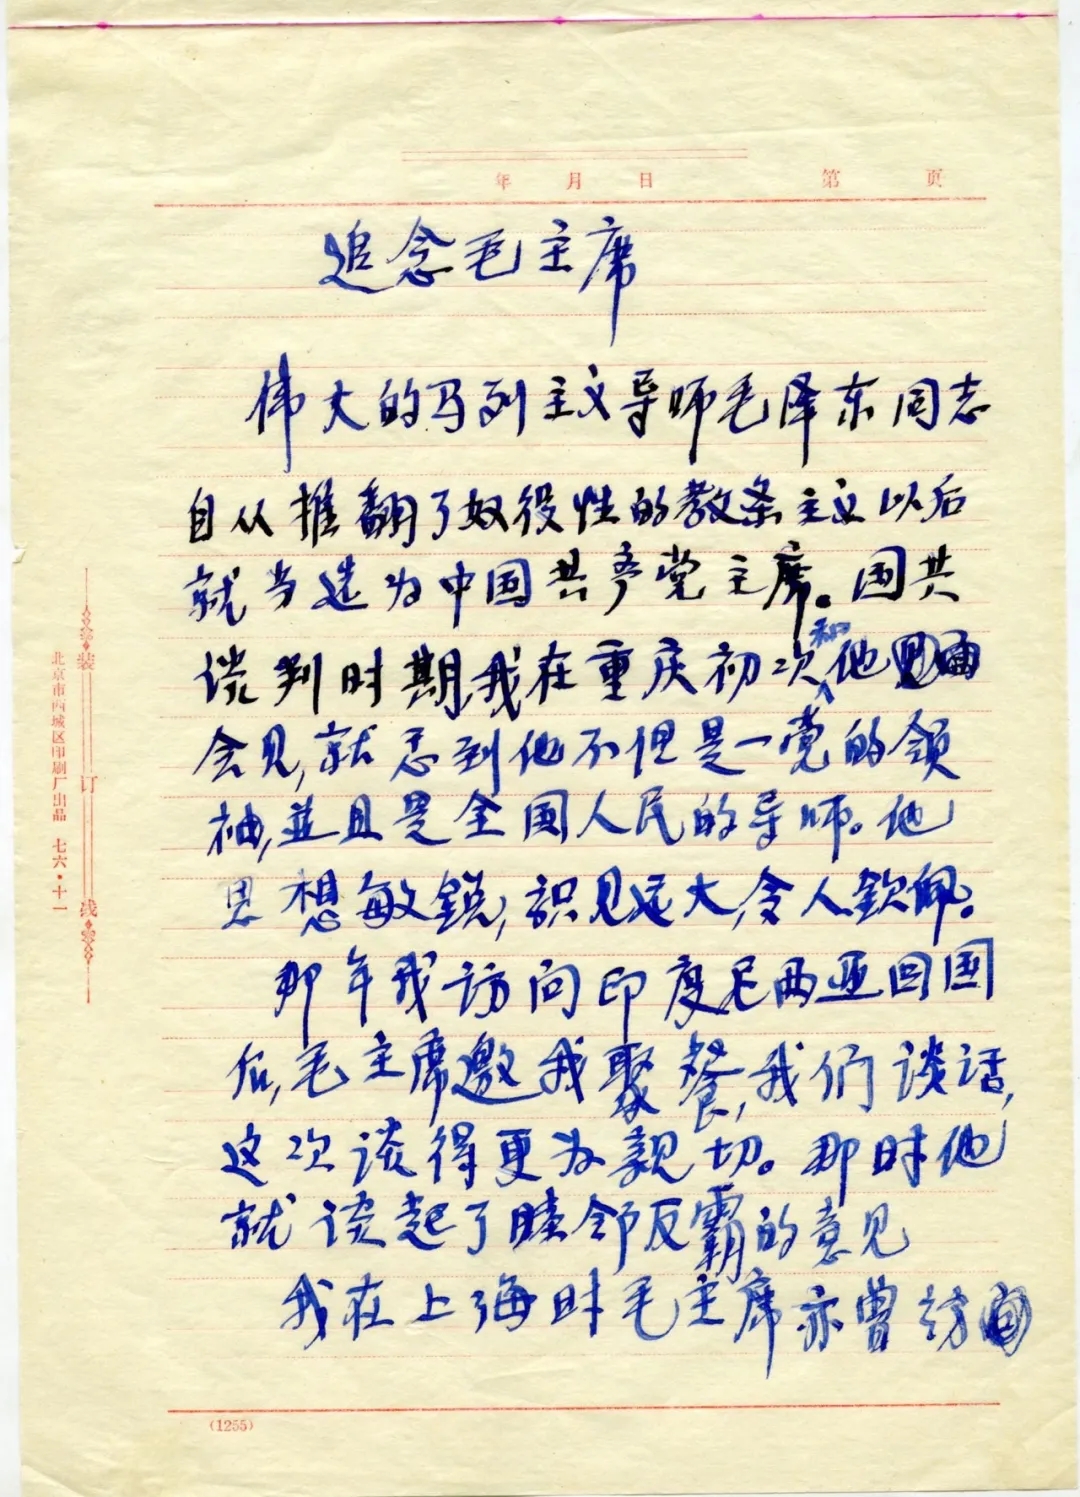 年 月 日 第 页
追念毛主席
伟大的马列主义导师毛泽东同志
自从推翻了奴役性的教条主义以后
就当选为中国共产党主席。国共
谈判时期,我在重庆初次和他
会见,就悉到他不但是一党的领
袖,並且是全国人民的导师。他
思想敏锐,识见远大,令人钦佩。
那年我访问印度尼西亚回国
后,毛主席邀我聚餐,我们谈话,
这次谈得更为亲切。那时他
就谈起了睦邻反霸的意见
我在上海时毛主席亦曾访
装 订 线
北京市西城区印刷厂出品 七六·十一
(1255)